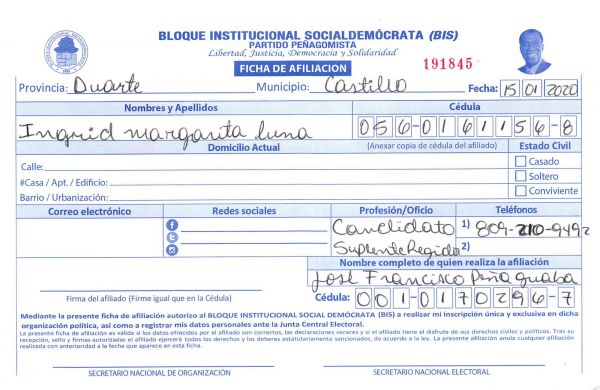 BLOQUE INSTITUCIONAL SOCIALDEMÓCRATA (BIS)
PARTIDO PEÑAGOMISTA
Libertad, Justicia, Democracia y Solidaridad
FICHA DE AFILIACION
191845
Provincia: Duarte Municipio: Castillo Fecha: 15 01 2020
Nombres y Apellidos Cédula
Ingrid margarita luna 056-0161156-8
Domicilio Actual (Anexar copia de cédula del afiliado) Estado Civil
Calle: Casado
#Casa / Apt. / Edificio: Soltero
Barrio / Urbanización: Conviviente
Correo electrónico Redes sociales Profesión/Oficio Teléfonos
Candidato 1) 809-210-9492
Suplente Regido 2)
Nombre completo de quien realiza la afiliación
José Francisco Peña guaba
Firma del afiliado (Firme igual que en la Cédula) Cédula: 001-0170296-7
Mediante la presente ficha de afiliación autorizo al BLOQUE INSTITUCIONAL SOCIAL DEMÓCRATA (BIS) a realizar mi inscripción única y exclusiva en dicha
organización política, así como a registrar mis datos personales ante la Junta Central Electoral.
La presente ficha de afiliación es válida si los datos ofrecidos por el afiliado son correctos, las declaraciones veraces y si el afiliado tiene el disfrute de sus derechos civiles y políticos. Tras su
recepción, sello y firmas autorizadas el afiliado ejercerá todos los derechos y los deberes estatutariamente sancionados, de acuerdo a la ley. La presente afiliación anula cualquier afiliación
realizada con anterioridad a la fecha que aparece en esta ficha.
SECRETARIO NACIONAL DE ORGANIZACIÓN SECRETARIO NACIONAL ELECTORAL